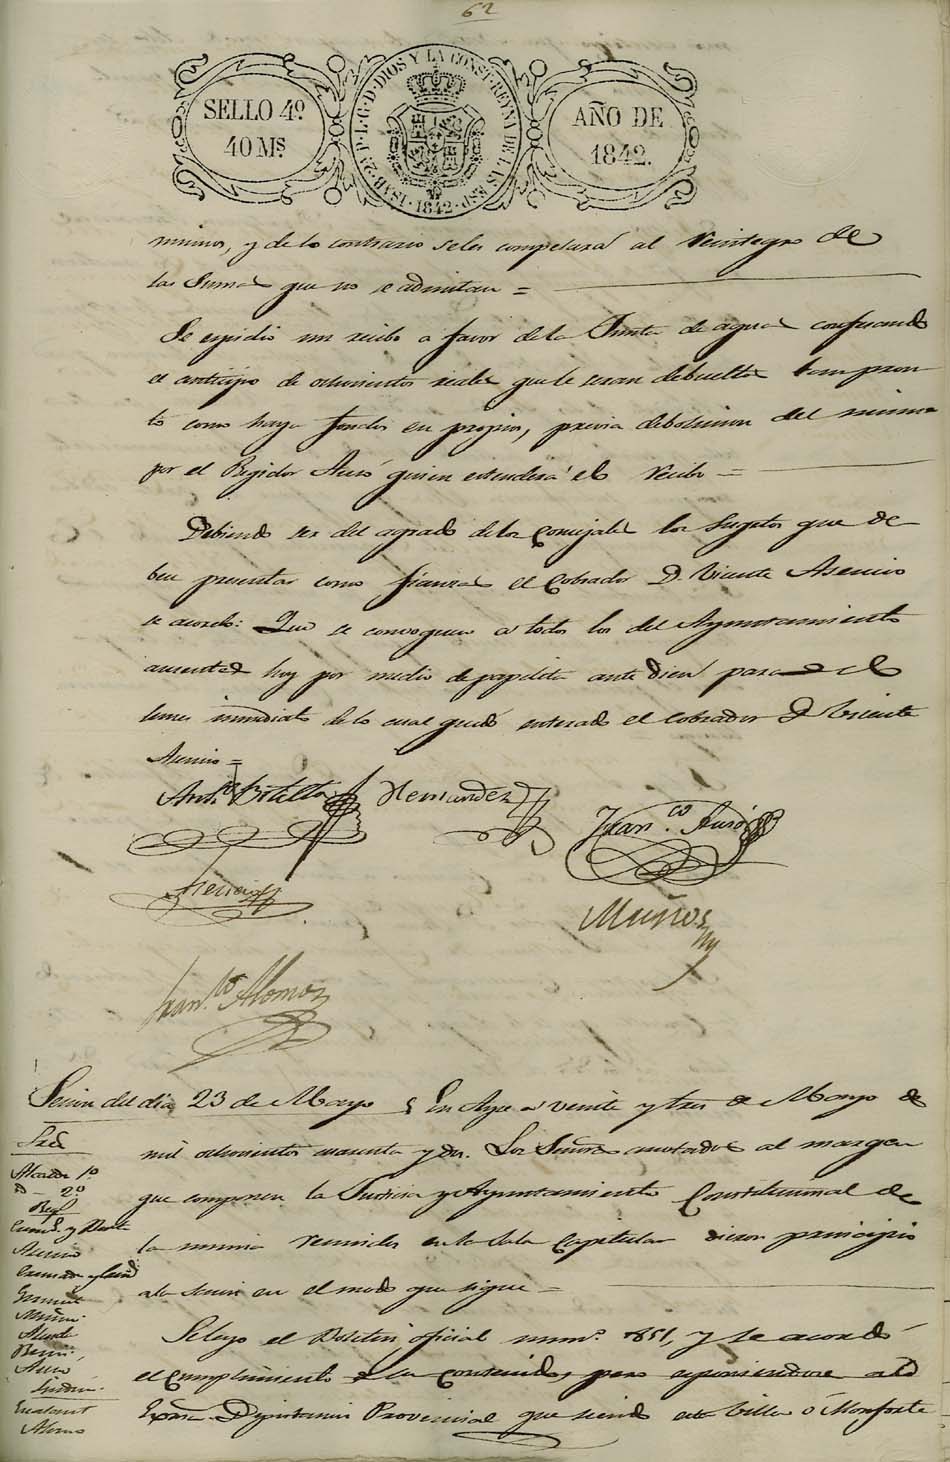 62
SELLO 4º
40 MS.
ISAB. 2ª P. L. G. D. DIOS Y LA CONST. REYNA DE LAS ESP.
1842
AÑO DE
1842.
mimos, y de lo contrario se les compelerá al reintegro de
las sumas que no se admitan =
Se espidió un recibo a favor de la Junta de aguas confesando
el anticipo de ochocientos reales que le seran debueltos tan pron
to como haya fondos en propios, previa debolucion del mismo
por el Regidor Auró quien estenderá el recibo =
Debiendo ser del agrado de los Concejales los sugetos que de
ben presentar como fianzas el Cobrador D. Vicente Asencio
se acordó: Que se convoquen a todos los del Ayuntamiento
ausentes hoy por medio de papeleta ante diem para el
lunes inmediato de lo cual quedó enterado el cobrador D. Vicente
Asencio =
Antº Botella
Hernandez
Franco. Auró
Asencio
Muños
Franco. Alomos
Secion del dia 23 de Mayo
En Aspe a veinte y tres de Mayo de
mil ochocientos cuarenta y dos. Los Señores anotados al margen
que componen la Justicia y Ayuntamiento Constitucional de
la misma reunidos en la Sala Capitular dieron principio
a la secion en el modo que sigue =
Sres
Alcalde 1º
D - 2º
Reg.
Asencio
Muñoz
Auró
Sindicos
Alomos
Se leyo el Boletin oficial num.º 851, y se acordó
el Cumplimiento de lo contenido, pero esponiendose a la
Exma. Diputacion Provencial que siendo esta Villa ó Monforte